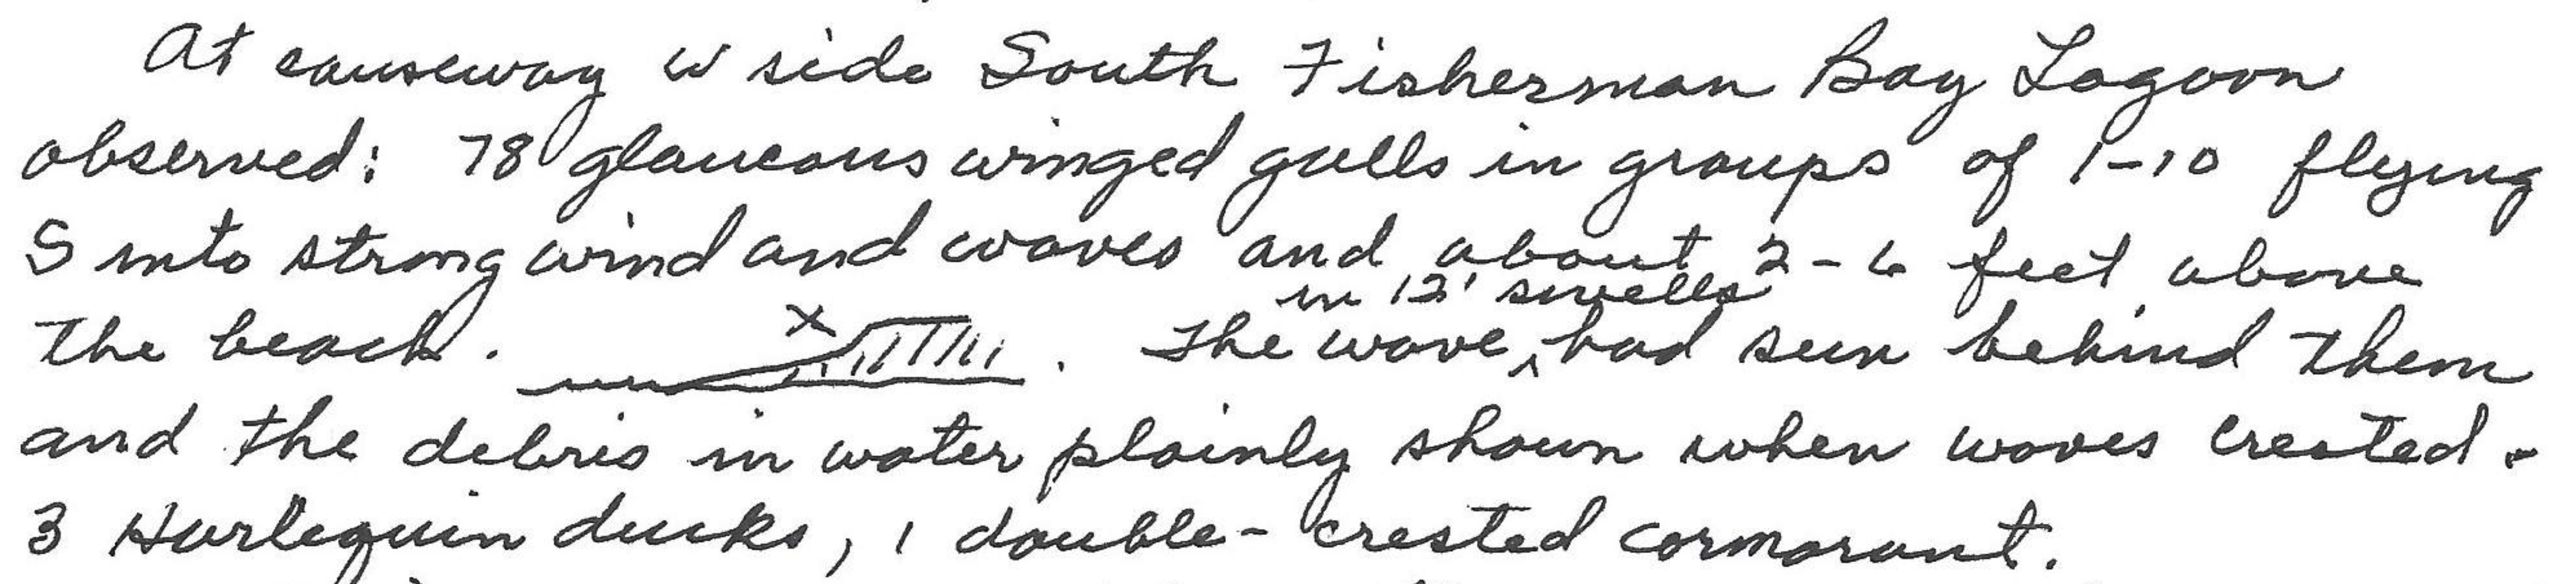 At causeway W side South Fisherman Bay Lagoon
observed: 78 glaucous winged gulls in groups of 1-10 flying
S into strong wind and waves and about 2-6 feet above
in 12' swells
the beach. X . The wave, had sun behind them
and the debris in water plainly shown when waves crested.
3 Harlequin ducks, 1 double-crested cormorant.